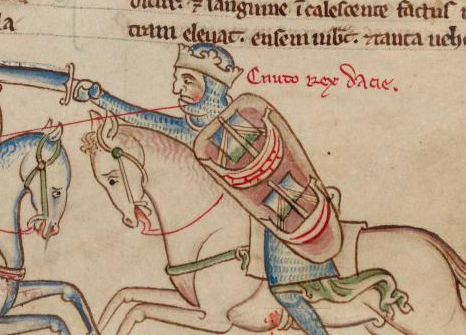 ⁊ sanguine icalescente factus
tram eleuat. ensem uib̄t. ⁊tanta ueh
la
Cnuto rex dacie.